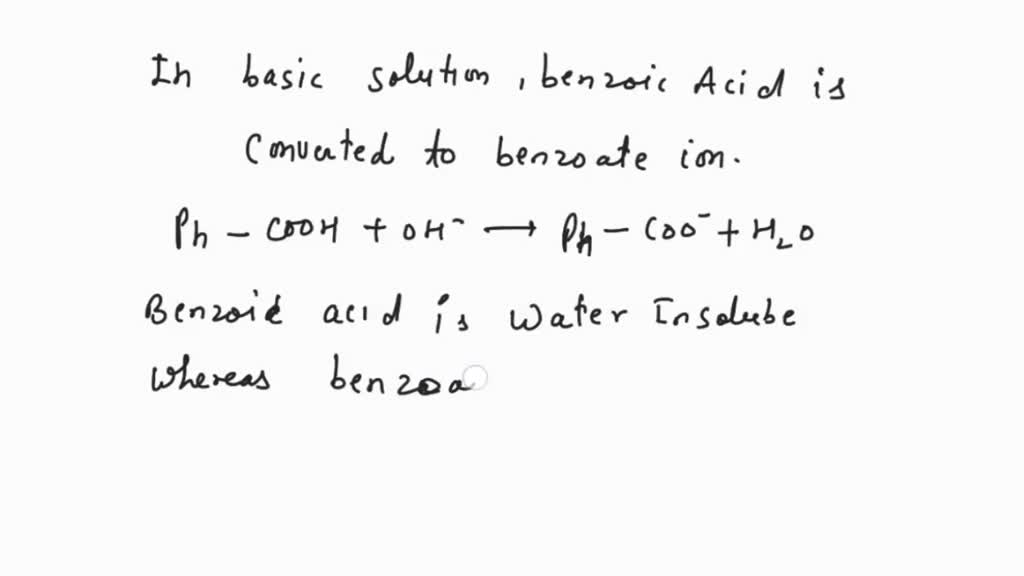 In basic solution, benzoic Acid is
Converted to benzoate ion.
Ph - COOH + OH⁻ → Ph - COO⁻ + H₂O
Benzoic acid is Water Insolube
Whereas benzoa